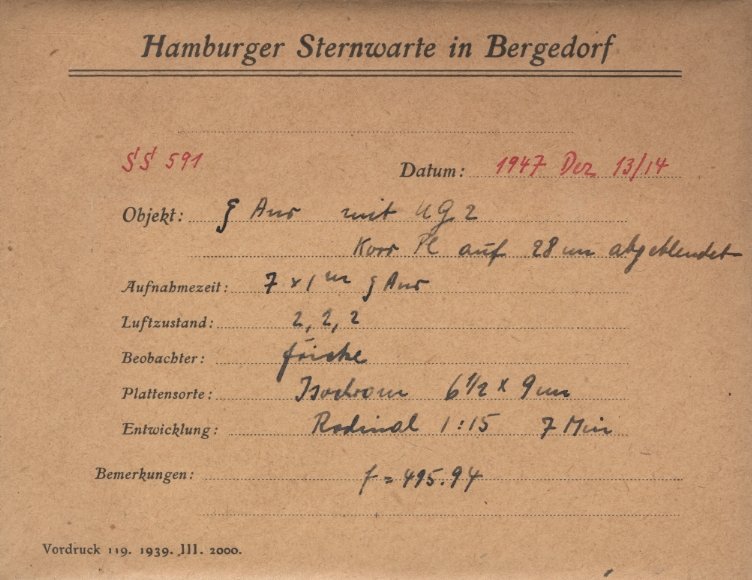 Hamburger Sternwarte in Bergedorf
§§ 591
Datum: 1947 Dez 13/14
Objekt: ζ Aur mit UG 2
Korr Pl auf 28 cm abgeblendet
Aufnahmezeit: 7 x 1ᵐ ζ Aur
Luftzustand: 2, 2, 2
Beobachter:
Plattensorte: Isochrom 6 1/2 x 9 cm
Entwicklung: Rodinal 1:15 7 Min
Bemerkungen: f = 495.94
Vordruck 119. 1939. III. 2000.